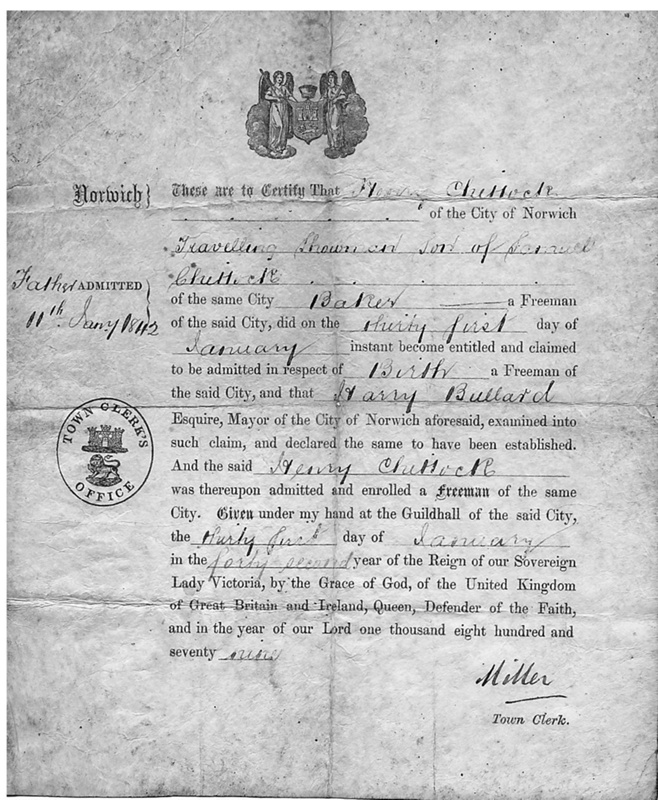 Norwich} These are to Certify That Henry Chittock
of the City of Norwich
Travelling Showman son of Samuel
Chittock
Father ADMITTED
11th Jany 1842
of the same City Baker a Freeman
of the said City, did on the thirty first day of
January instant become entitled and claimed
to be admitted in respect of Birth a Freeman of
the said City, and that Harry Bullard
Esquire, Mayor of the City of Norwich aforesaid, examined into
such claim, and declared the same to have been established.
And the said Henry Chittock
was thereupon admitted and enrolled a Freeman of the same
City. Given under my hand at the Guildhall of the said City,
the thirty first day of January
in the forty second year of the Reign of our Sovereign
Lady Victoria, by the Grace of God, of the United Kingdom
of Great Britain and Ireland, Queen, Defender of the Faith,
and in the year of our Lord one thousand eight hundred and
seventy nine
TOWN CLERK'S
OFFICE
Miller
Town Clerk.